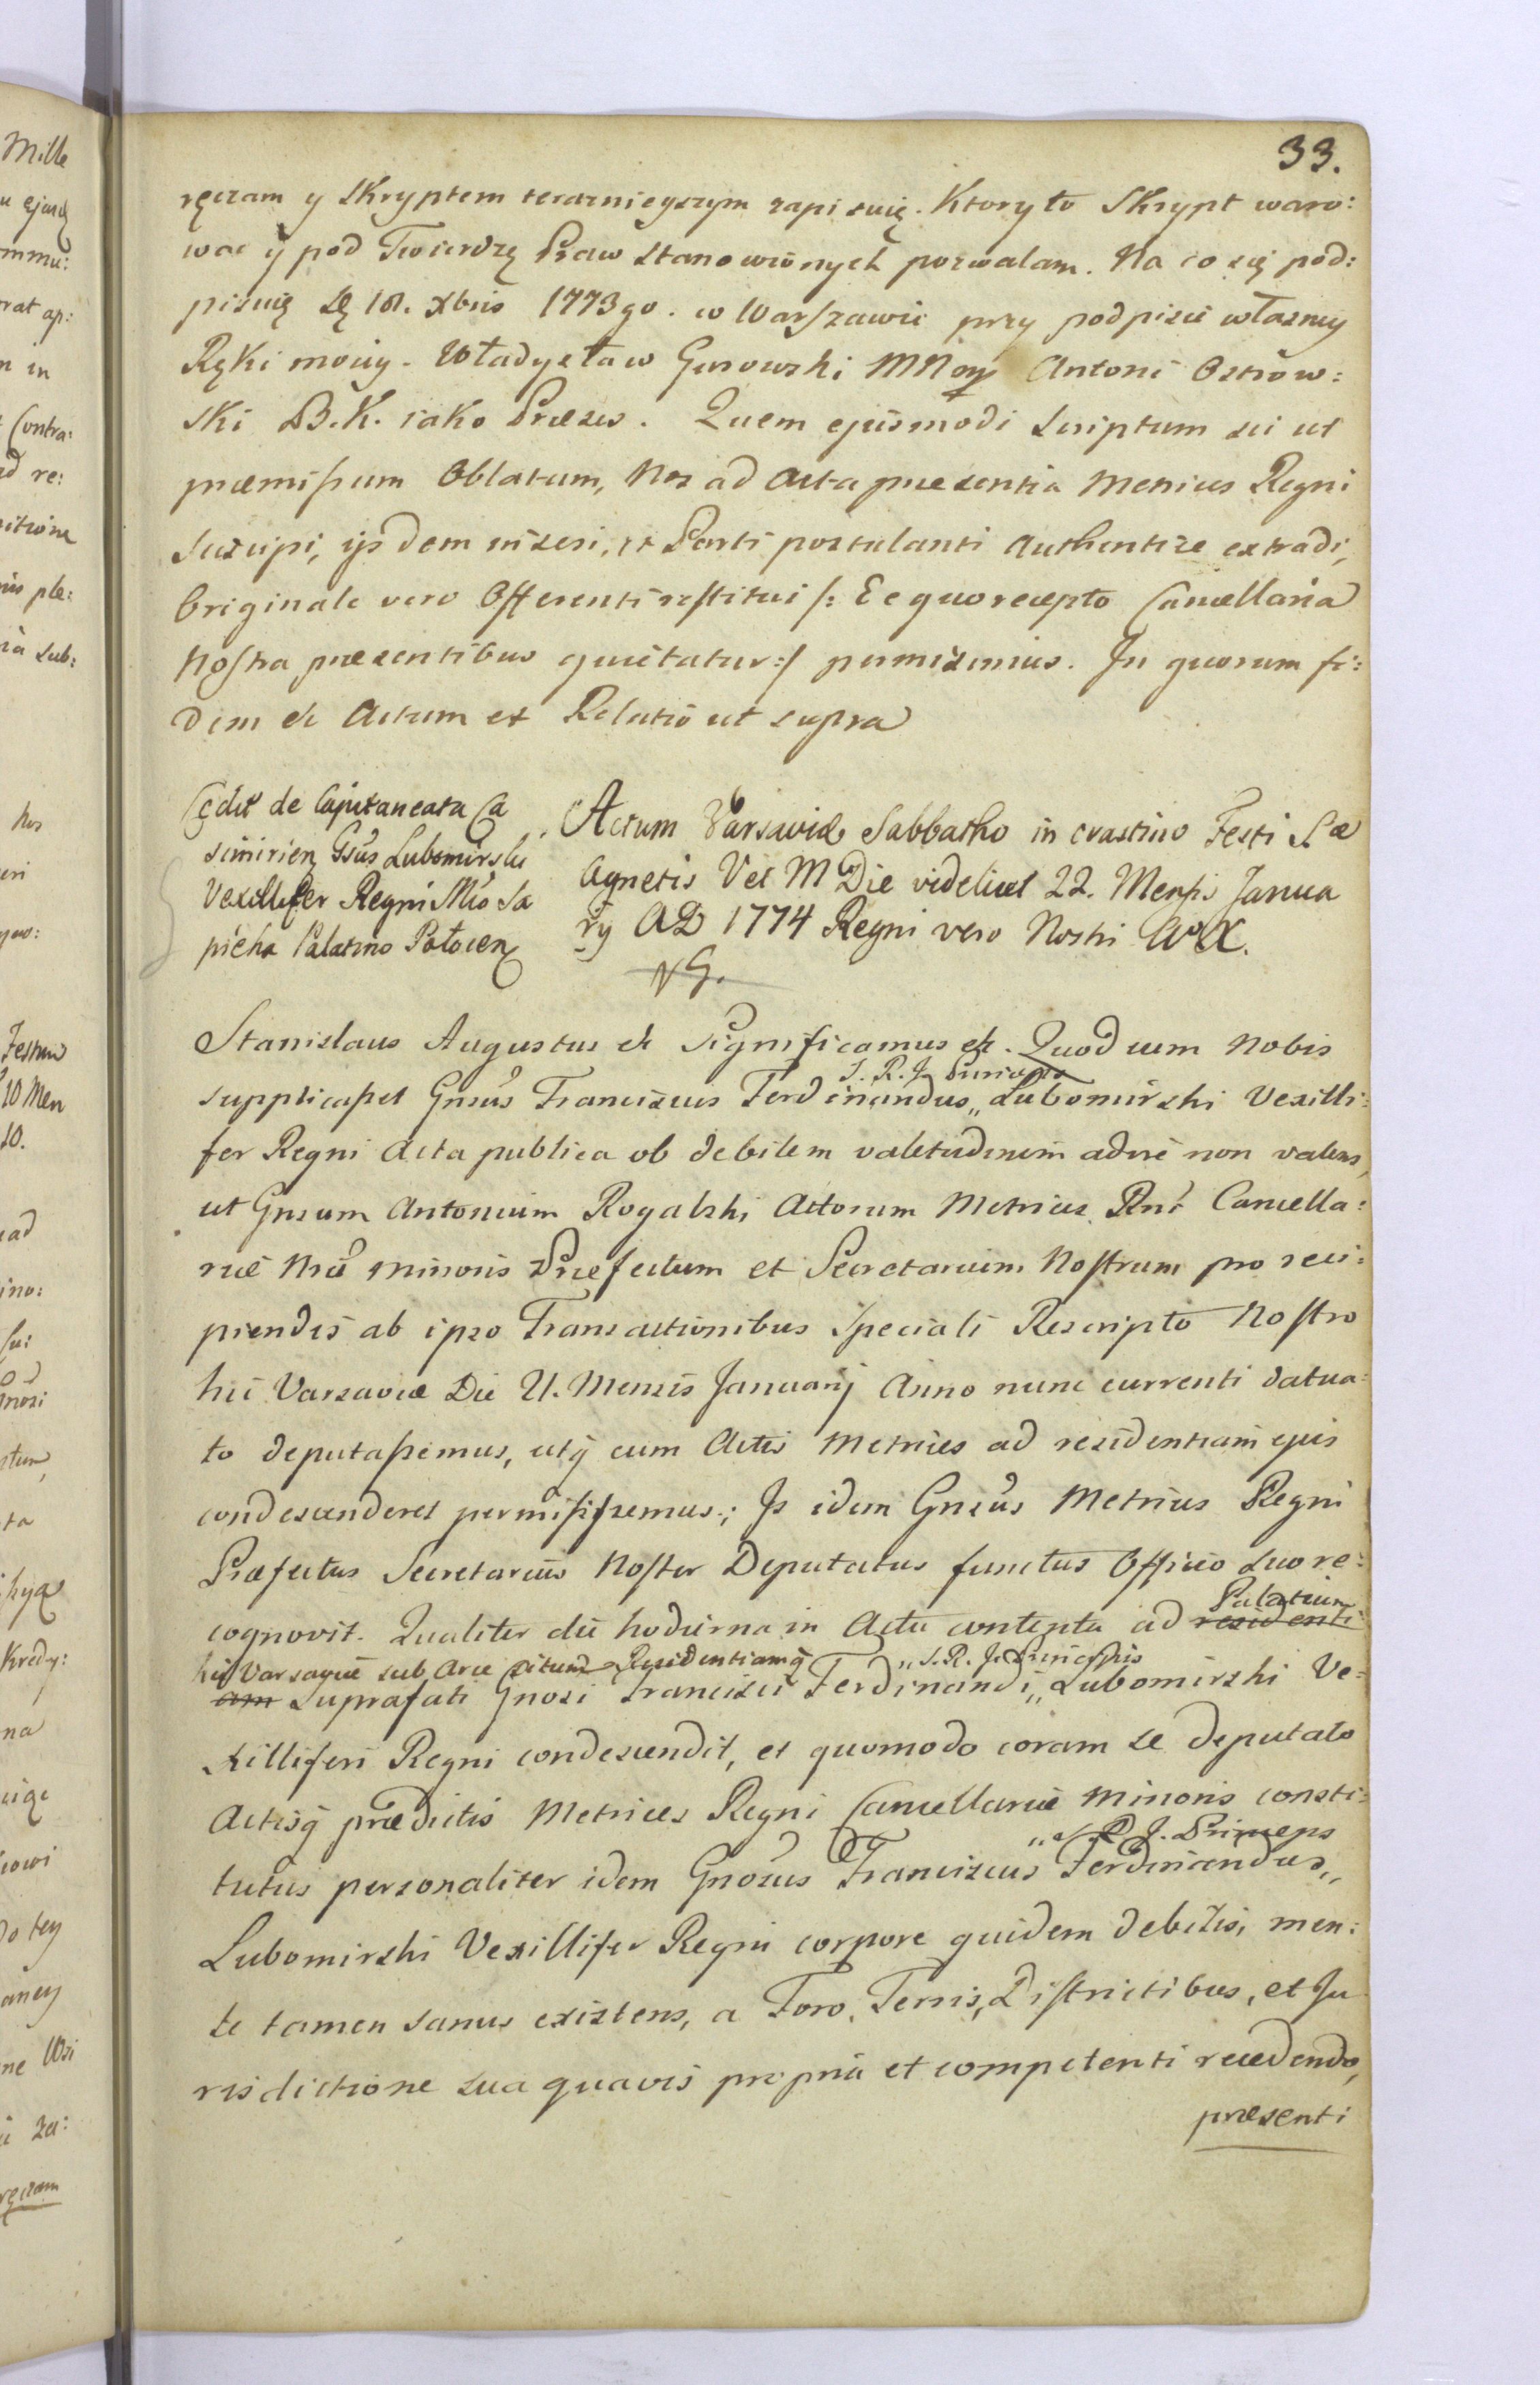 33.
ręczam y Skryptem terarznieyszym zapisuię. Ktory to Skrypt waro:
wac y pod Twierdzę Praw stanowionych pozwalam. Na co się pod:
pisuię Dę 18. Xbris 1773go. w Warszawie przy podpisie własney
Ręki moiey. Władysław Gurowski MNoy Antoni Ostrow:
ski B.K. iako Prezes. Quem ejusmodi Scriptum sic ut
præmissum Oblatum, Nos ad Acta præsentia Metrices Regni
Suscipi, ijsdem inseri, et Parti postulanti Authentice extradi,
Originale vero Offerenti restitui /: De quo recepto Cancellaria
Nostra præsentibus quietatur :/ permisimus. In quorum fi:
dem &c Actum et Relatio ut supra
Cedit de Capitaneatu Ca
simirien Gsus Lubomirski
Vexillifer Regni Mco Sa
pieha Palatino Polocen
Actum Varsaviæ Sabbatho in crastino Festi Sæ
Agnetis Vet M Die videlicet 22. Mensis Janua
ry AD 1774 Regni vero Nostri Ao X.
NG.
Stanislaus Augustus &c Significamus &c. Quod cum Nobis
S. R. J. Princeps
supplicasset Gnsus Franciscus Ferdinandus,, Lubomirski Vexilli:
fer Regni Acta publica ob debilem valetudinem adire non valens,
ut Gnsum Antonium Rogalski Actorum Metrices Rni Cancella:
riæ Nræ Minoris Præfectum et Secretarium Nostrum pro reci:
piendis ab ipso Transactionibus Speciali Rescripto Nostro
hic Varsaviæ Die 21. Mensis Januarij Anno nunc currenti datua:
to deputassemus, utq cum Actis Metrices ad residentiam ejus
condescenderet permisissemus.; Is idem Gnsus Metrices Regni
Præfectus Secretarius Noster Deputatus functus Officio suo re:
cognovit. Qualiter die hodierna in Actu contenta ad residenti
Palatium
hic Varsaviæ sub Arce situm Residentiamq
,,S. R. J. Principis
am Suprafati Gnosi Francisci Ferdinandi,, Lubomirski Ve:
xilliferi Regni condescendit, et quomodo coram se Deputato
Actisq prædictis Metrices Regni Cancellariæ Minoris consti:
,,S. R. J. Princeps
tutus personaliter idem Gnosus Franciscus Ferdinandus,,
Lubomirski Vexillifer Regni corpore quidem debilis, men:
te tamen sanus existens, a Foro, Terris, Districtibus, et Ju
risdictione sua quavis propria et competenti recedendo,
præsenti